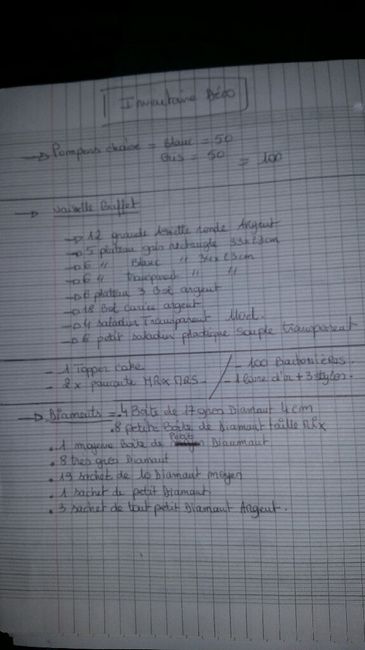 Inventaire Déco
Pompons chaise = Blanc = 50
Gris = 50 = 100
Vaiselle Buffet
12 grande Assiette ronde Argent
5 plateau gris rectangle 33x23cm
6 " Blanc "
6 " Transparent " "
6 plateau 3 Bol argent
18 Bol carice argent
4 saladier Transparent
6 petit saladier plastique souple transparent
- 1 Topper cake
- 100 Badonières
- 2 x pancarte MR x MRS
- 1 livre d'or + 3 stylos
Diamants = 4 Boite de 17 gros Diamant 4cm
8 petite Boite de Diamant taille
1 moyenne Boite de Petits Diaumaut
8 tres gros Diamant
19 sachets de 10 Diamant moyen
1 sachet de petit Diamant
3 sachet de tout petit Diamant Argent.